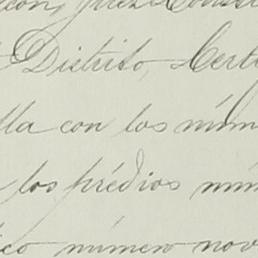 Distrito, Cert
lla con los núm
los prédios nú
ico número nov